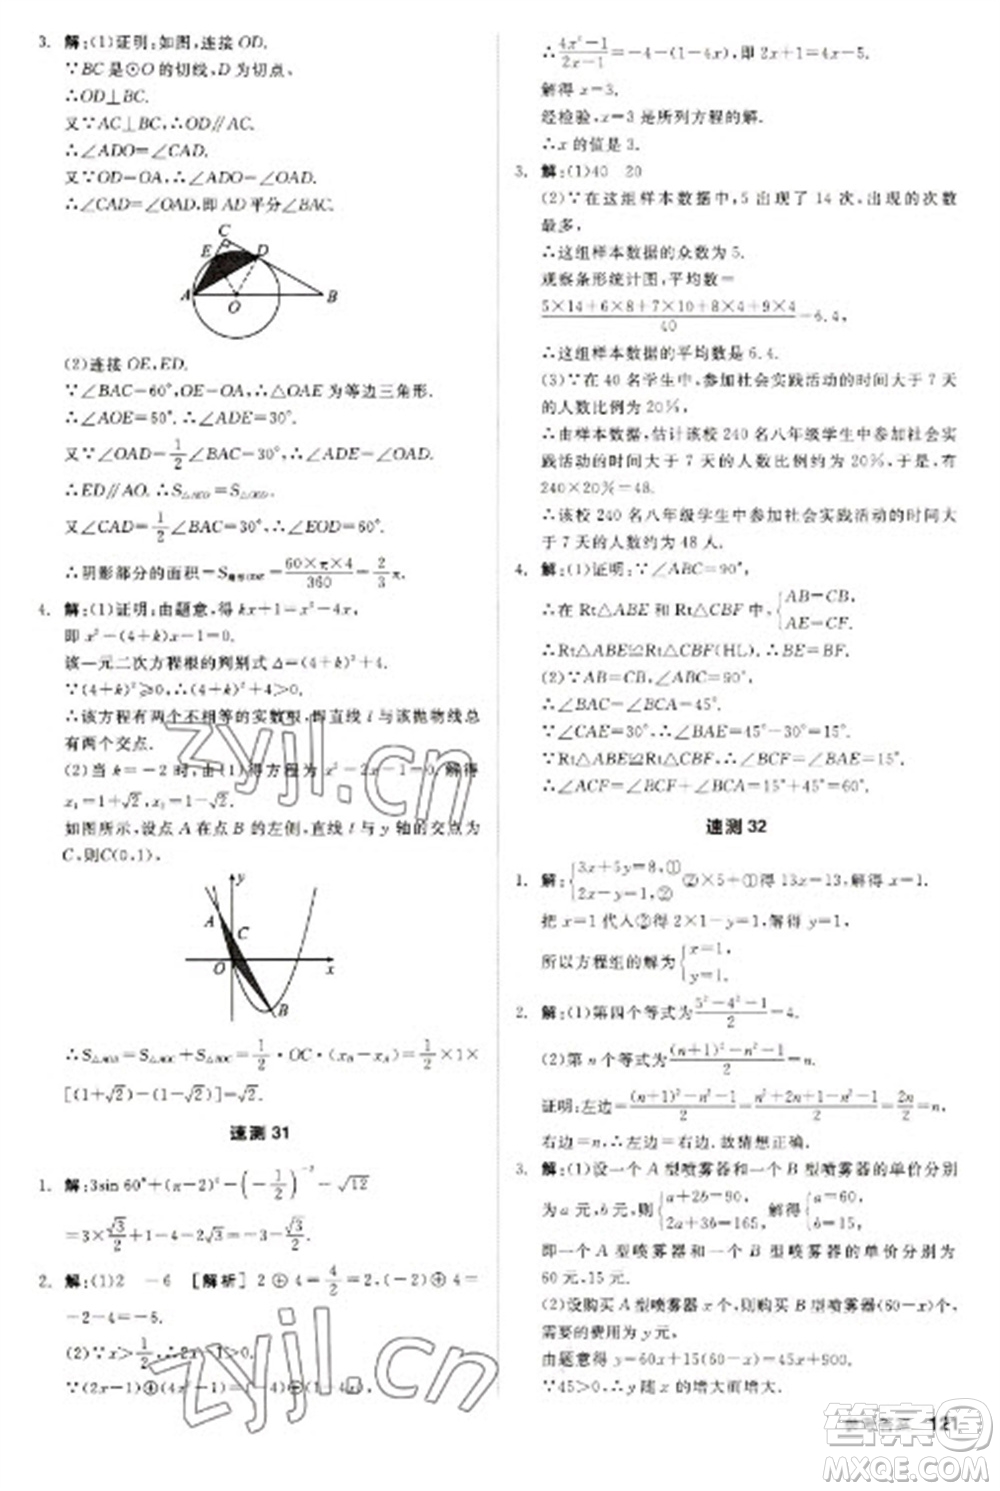 3. 解:(1)证明:如图,连接 OD.
∵BC 是⊙O 的切线,D 为切点、
∴OD⊥BC.
又∵AC⊥BC,∴OD∥AC.
∴∠ADO=∠CAD.
又∵OD=OA,∴∠ADO=∠OAD.
∴∠CAD=∠OAD,即 AD 平分∠BAC.
C
E D
A O B
(2)连接 OE,ED.
∵∠BAC=60°,OE=OA,∴△OAE 为等边三角形.
∴∠AOE=60°.∴∠ADE=30°.
又∵∠OAD=1/2∠BAC=30°,∴∠ADE=∠OAD.
∴ED∥AO.∴S△AED=S△OED.
又∠CAD=1/2∠BAC=30°,∴∠EOD=60°.
∴阴影部分的面积=S扇形ODE=60×π×4/360=2/3π.
4. 解:(1)证明:由题意,得 kx+1=x²-4x,
即 x²-(4+k)x-1=0.
该一元二次方程根的判别式 Δ=(4+k)²+4.
∵(4+k)²≥0,∴(4+k)²+4>0.
∴该方程有两个不相等的实数根,即直线 l 与该抛物线总
有两个交点.
(2)当 k=-2 时,由(1)得方程为 x²-2x-1=0.解得
x₁=1+√2,x₂=1-√2.
如图所示,设点 A 在点 B 的左侧,直线 l 与 y 轴的交点为
C,则C(0,1).
y
A
C
O x
B
∴S△AOB=S△AOC+S△BOC=1/2·OC·(xB-xA)=1/2×1×
[(1+√2)-(1-√2)]=√2.
速测 31
1. 解:3sin 60°+(π-2)⁰-(-1/2)⁻²-√12
=3×√3/2+1-4-2√3=-3-√3/2.
2. 解:(1)2 -6 [解析] 2⊕4=4/2=2,(-2)⊕4=
-2-4=-6.
(2)∵x>1/2,∴2x-1>0.
∵(2x-1)⊕(4x²-1)=
∴4x²-1/2x-1=-4-(1-4x),即 2x+1=4x-5.
解得 x=3.
经检验,x=3 是所列方程的解.
∴x 的值是 3.
3. 解:(1)40 20
(2)∵在这组样本数据中,5 出现了 14 次,出现的次数
最多,
∴这组样本数据的众数为 5.
观察条形统计图,平均数=
5×14+6×8+7×10+8×4+9×4/40=6.4,
∴这组样本数据的平均数是 6.4.
(3)∵在 40 名学生中,参加社会实践活动的时间大于 7 天
的人数比例为 20%,
∴由样本数据,估计该校 240 名八年级学生中参加社会实
践活动的时间大于 7 天的人数比例约为 20%,于是,有
240×20%=48.
∴该校 240 名八年级学生中参加社会实践活动的时间大
于 7 天的人数约为 48 人.
4. 解:(1)证明:∵∠ABC=90°,
∴在 Rt△ABE 和 Rt△CBF 中,{AB=CB, AE=CF.
∴Rt△ABE≌Rt△CBF(HL).∴BE=BF.
(2)∵AB=CB,∠ABC=90°,
∴∠ABC=∠BCA=45°.
∵∠CAE=30°,∴∠BAE=45°-30°=15°.
∵Rt△ABE≌Rt△CBF,∴∠BCF=∠BAE=15°.
∴∠ACF=∠BCF+∠BCA=15°+45°=60°.
速测 32
1. 解:{3x+5y=8,① 2x-y=1,② ②×5+①得 13x=13,解得 x=1.
把 x=1 代入②得 2×1-y=1,解得 y=1.
所以方程组的解为{x=1, y=1.
2. 解:(1)第四个等式为 5²-4²-1/2=4.
(2)第 n 个等式为 (n+1)²-n²-1/2=n.
证明:左边=(n+1)²-n²-1/2=n²+2n+1-n²-1/2=2n/2=n,
右边=n,∴左边=右边,故猜想正确.
3. 解:(1)设一个 A 型喷雾器和一个 B 型喷雾器的单价分别
为 a 元,b 元,则{a+2b=90, 2a+3b=165, 解得{a=60, b=15.
即一个 A 型喷雾器和一个 B 型喷雾器的单价分别为
60 元,15 元.
(2)设购买 A 型喷雾器 x 个,则购买 B 型喷雾器(60-x)个,
需要的费用为 y 元.
由题意得 y=60x+15(60-x)=45x+900.
∵45>0,∴y 随 x 的增大而增大.
参考答案 121
zyjl.cn
zyjl.cn
答案圈
MXQE.COM